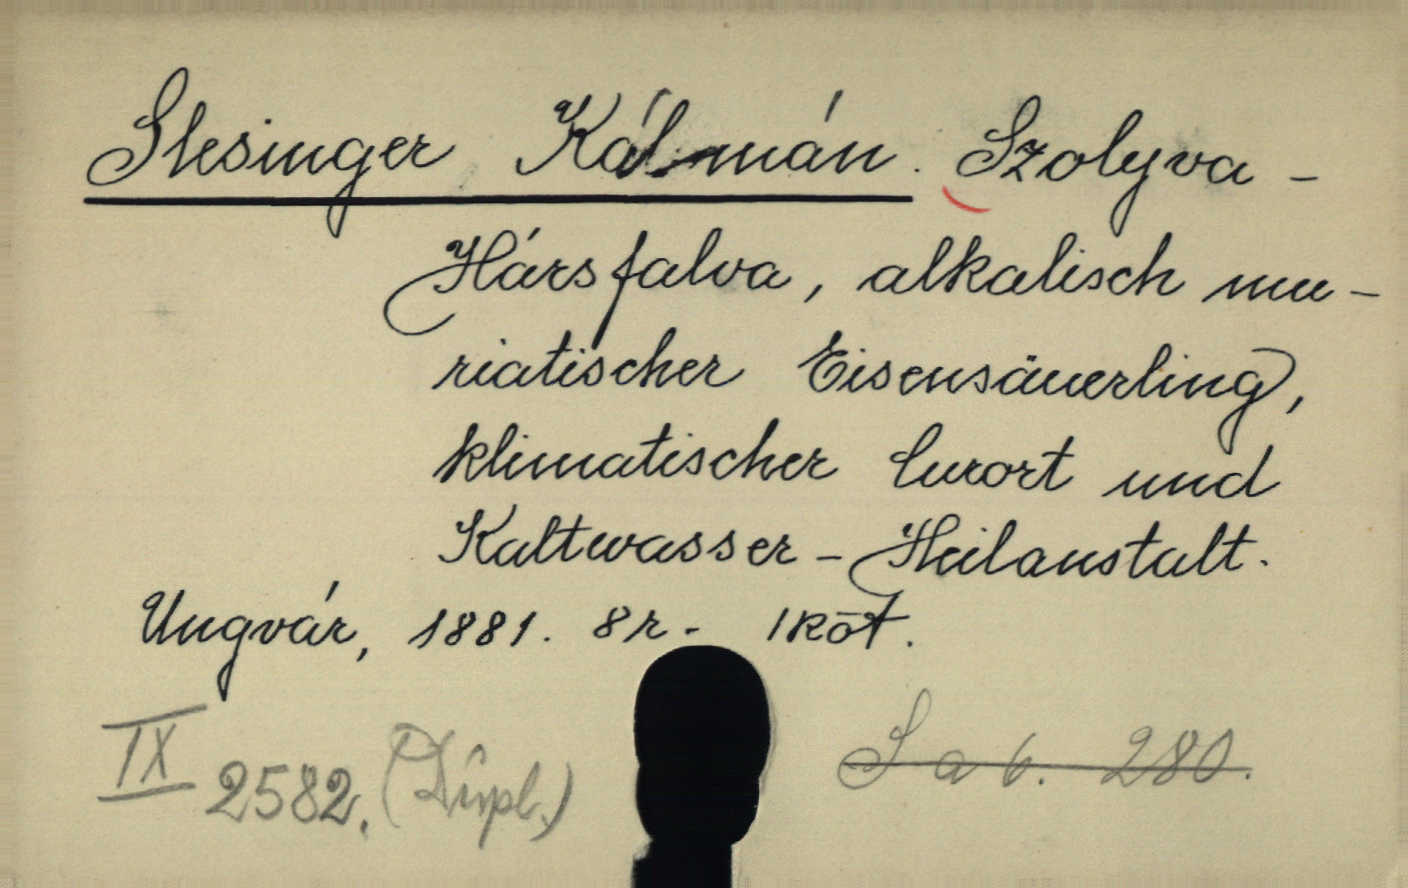 Slesinger Kálmán. Szolyva -
Hársfalva, alkalisch mu -
riatischer Eisensäuerling,
klimatischer Curort und
Kaltwasser - Heilanstalt.
Ungvár, 1881. 8r. 1 köt.
IX 2582. (Dupl.)
S a 6. 280.